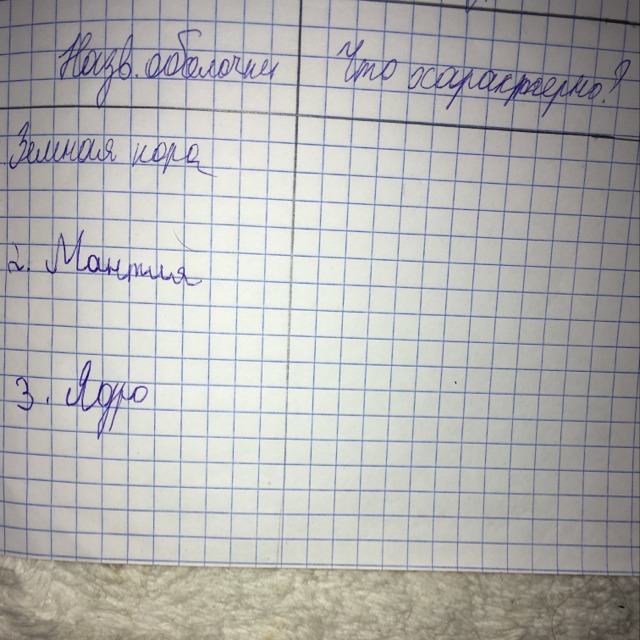 Назв. оболочки
Что характерно?
Земная кора
2. Мантия
3. Ядро